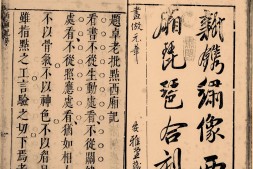 鐫繡像西
廂琵琶合刻
畫倣元筆
安雅堂藏
題卓老批點西廂記
看書不從生動處看不從關鍵
處看不從照應處看猶如相人
不以骨氣不以神色不以眉
雖指點之工言驗之切下焉者